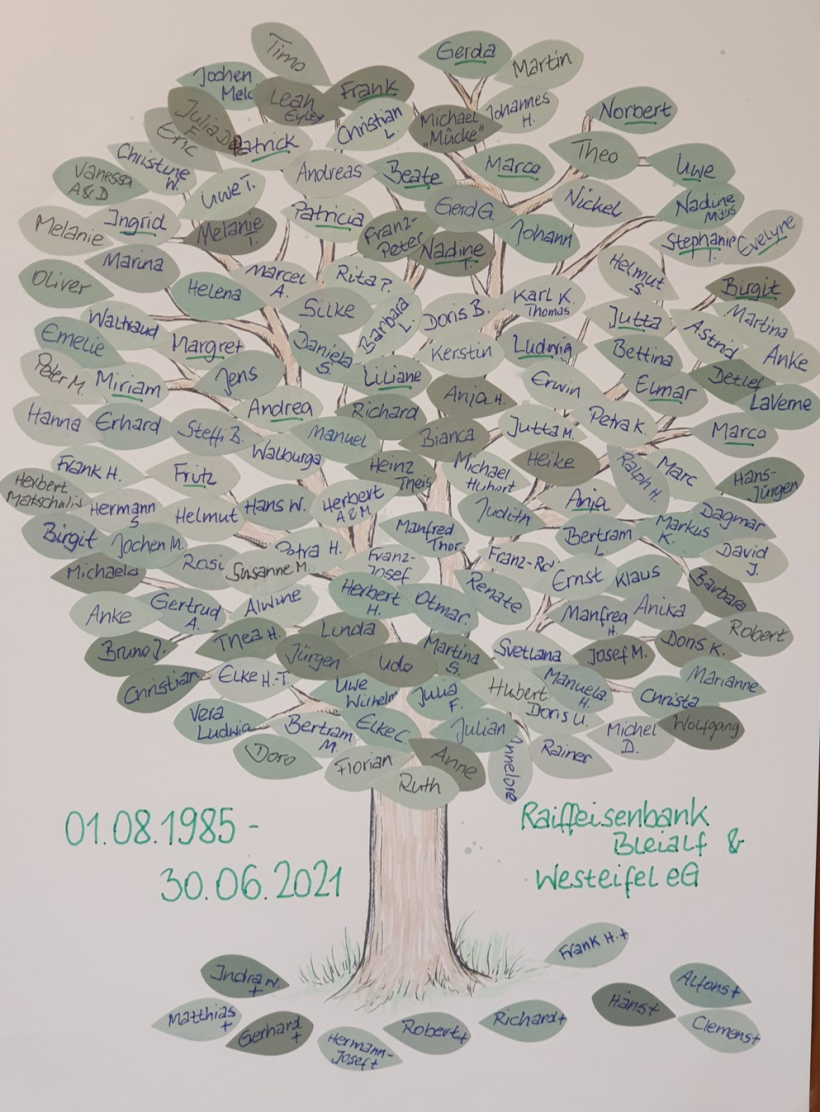 Timo
Gerda
Martin
Jochen
Melc
Leah
Eyley
Frank
Julia D
Eric
F.
Patrick
Christian
L.
Michael
"Mücke"
Johannes
H.
Norbert
Theo
Uwe
Christine
W.
Vanessa
A & D
Uwe T.
Andreas
Beate
Marco
Nickel
Nadine
Maus
Melanie
Ingrid
Melanie
T.
Patricia
Franz-
Peter
Gerd G.
Nadine
T.
Johann
Stephanie
T.
Evelyne
Marina
Oliver
Helena
Marcel
A.
Rita P.
Silke
Barbara
L.
Doris B.
Karl K.
Thomas
Helmut
S.
Birgit
Jutta
Martina
Waltraud
Emelie
Margret
Daniela
S.
Kerstin
Ludwig
Bettina
Astrid
Anke
Peter M.
Miriam
Jens
Liliane
Anja H.
Erwin
Elmar
Detlef
LaVerne
Hanna
Erhard
Steffi B.
Andrea
Richard
Manuel
Bianca
Jutta M.
Petra K.
Marco
Walburga
Frank H.
Fritz
Heinz
Theis
Michael
Hubert
Heike
Ralph H.
Marc
Hans-
Jürgen
Herbert
Matschulis
Hermann
S
Helmut
Hans W.
Herbert
A & M
Judith
Anja
Dagmar
Birgit
Jochen M.
Rosi
Petra H.
Susanne M.
Manfred
Thor.
Franz-
Josef
Franz-Ro
Bertram
L.
Markus
K.
David
J.
Michaela
Anke
Gertrud
A.
Alwine
Herbert
H.
Otmar
Renate
Ernst
Klaus
Barbara
Manfred
H.
Anika
Robert
Bruno J.
Thea H.
Linda
Jürgen
Udo
Martina
S.
Svetlana
Josef M.
Doris K.
Christian
Elke H.-T.
Uwe
Wilhelm
Julia
F.
Hubert
Doris U.
Manuela
H.
Christa
Marianne
Vera
Ludwig
Bertram
M.
Elke C.
Julian
Michel
D.
Wolfgang
Doro
Florian
Anne
Ruth
Rainer
01.08.1985 -
30.06.2021
Raiffeisenbank
Bleialf &
Westeifel eG
Frank H.+
Indra W.
+
Alfons+
Matthias
+
Gerhard
+
Hermann-
Josef+
Robert+
Richard+
Hans+
Clemens+